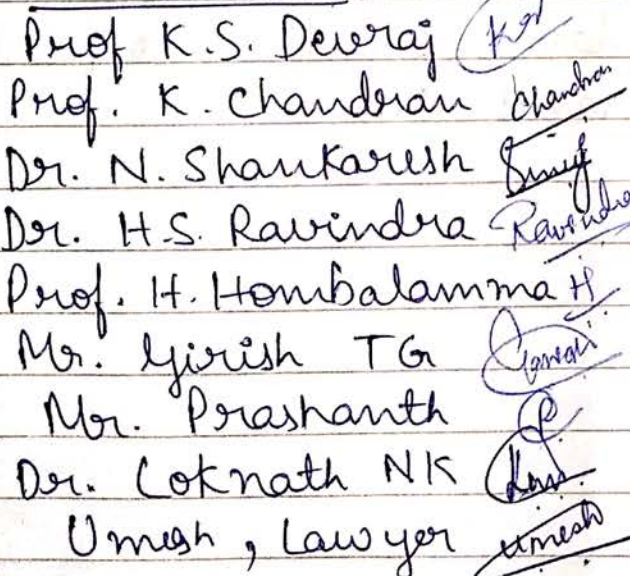 Prof K.S. Devraj
Prof. K. Chandran Chandran
Dr. N. Shankaresh
Dr. H.S. Ravindra Ravindra
Prof. H. Hombalamma H
Mr. Girish TG
Mr. Prashanth P
Dr. Loknath NK
Umesh, Lawyer Umesh